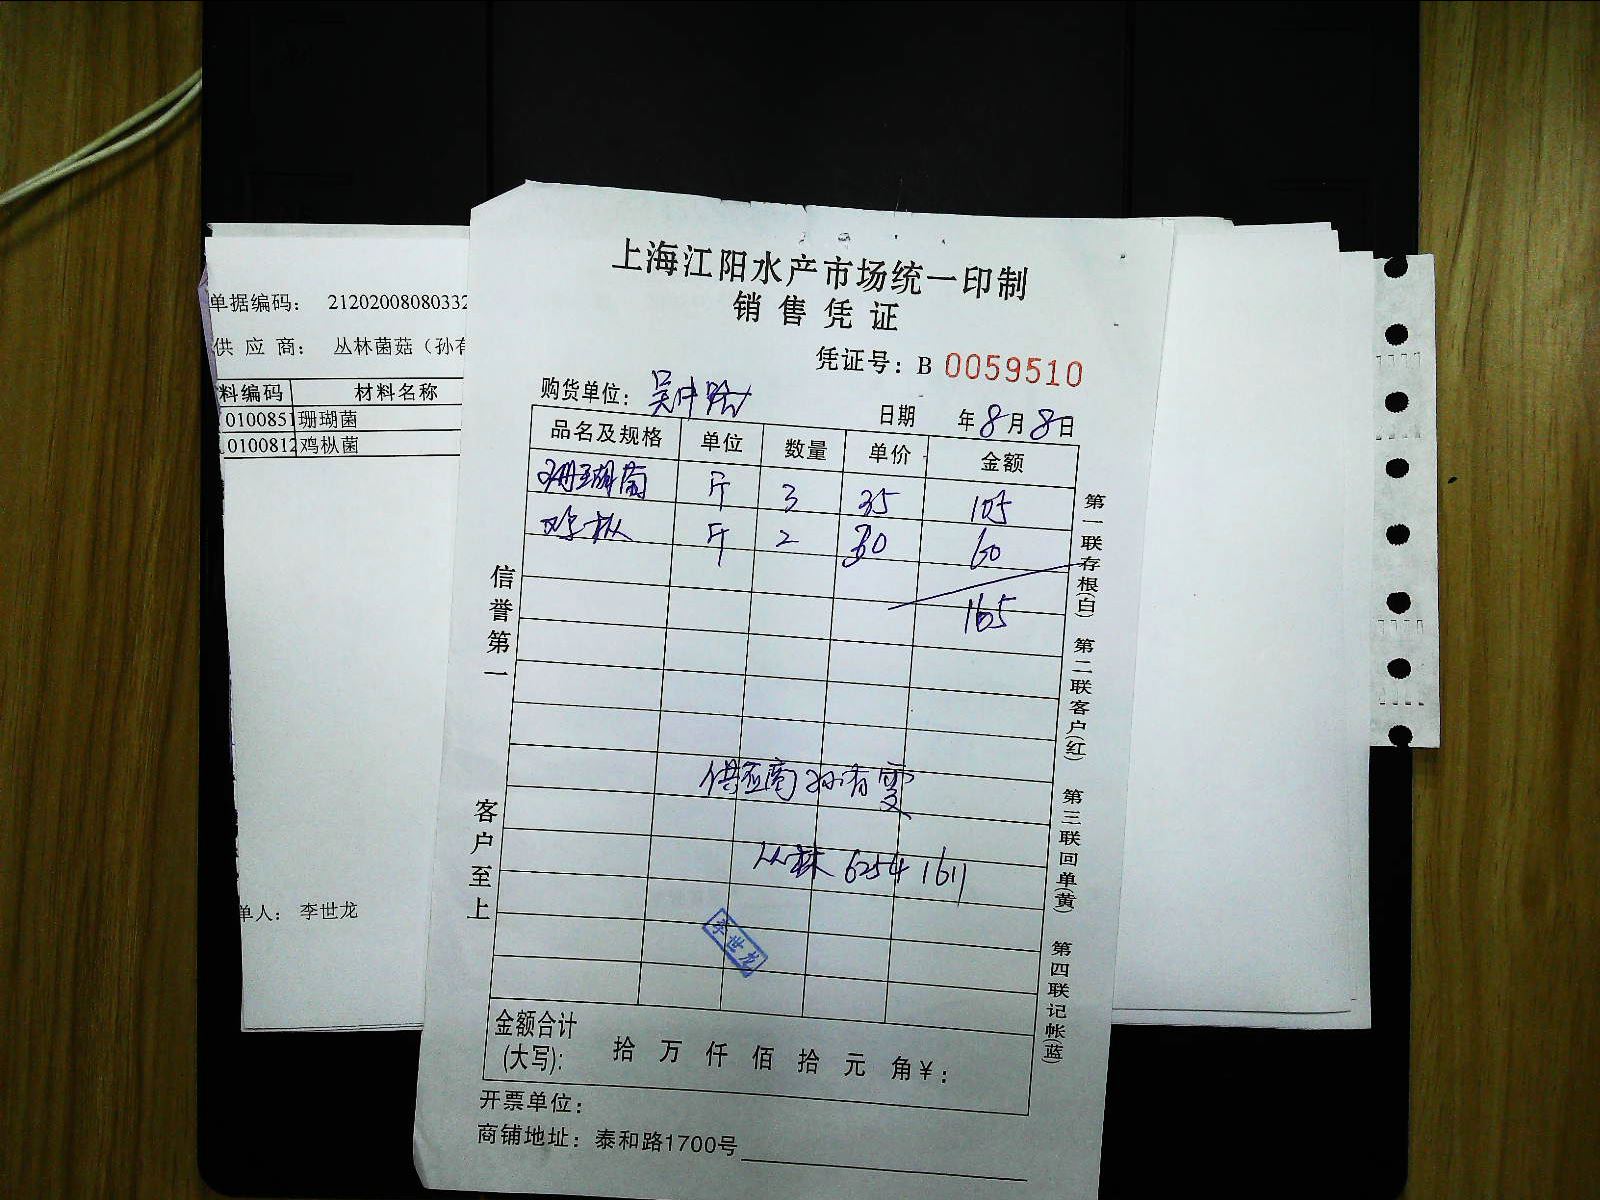 上海江阳水产市场统一印制
销售凭证
凭证号：B 0059510
购货单位：吴中路
日期 年8月8日
品名及规格 单位 数量 单价 金额
珊瑚菌 斤 3 35 105
鸡枞 斤 2 30 60
165
供应商孙有雯
丛林 62541611
李世龙
金额合计
(大写)： 拾 万 仟 佰 拾 元 角 ¥：
开票单位：
商铺地址：泰和路1700号
信誉第一
客户至上
第一联存根(白) 第二联客户(红) 第三联回单(黄) 第四联记帐(蓝)
单据编码： 21202008080332
供应商： 丛林菌菇（孙有
料编码 材料名称
0100851 珊瑚菌
0100812 鸡枞菌
单人： 李世龙